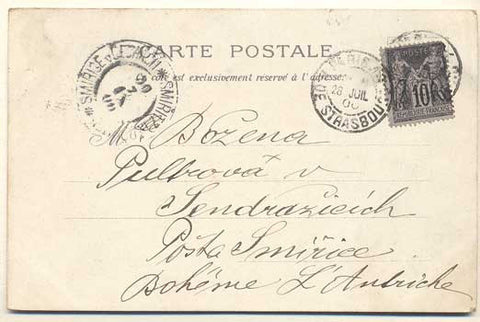 CARTE POSTALE
Ce côté est exclusivement réservé à l'adresse
SMIŘICE v ČECHÁCH * SMIŘITZ
PARIS
28 JUIL 00
DE STRASBOU
10
Božena
Pultrová v
Sendražicích
Pošta Smiřice
Bohême L'Autriche